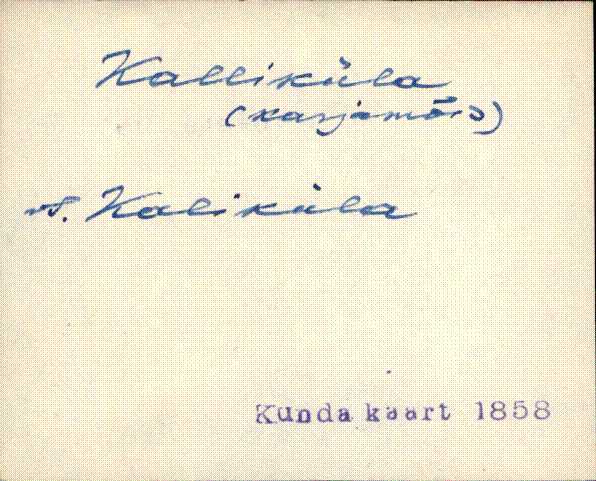 Kalliküla
(karjamõis)
vt. Kaliküla
Kunda kaart 1858